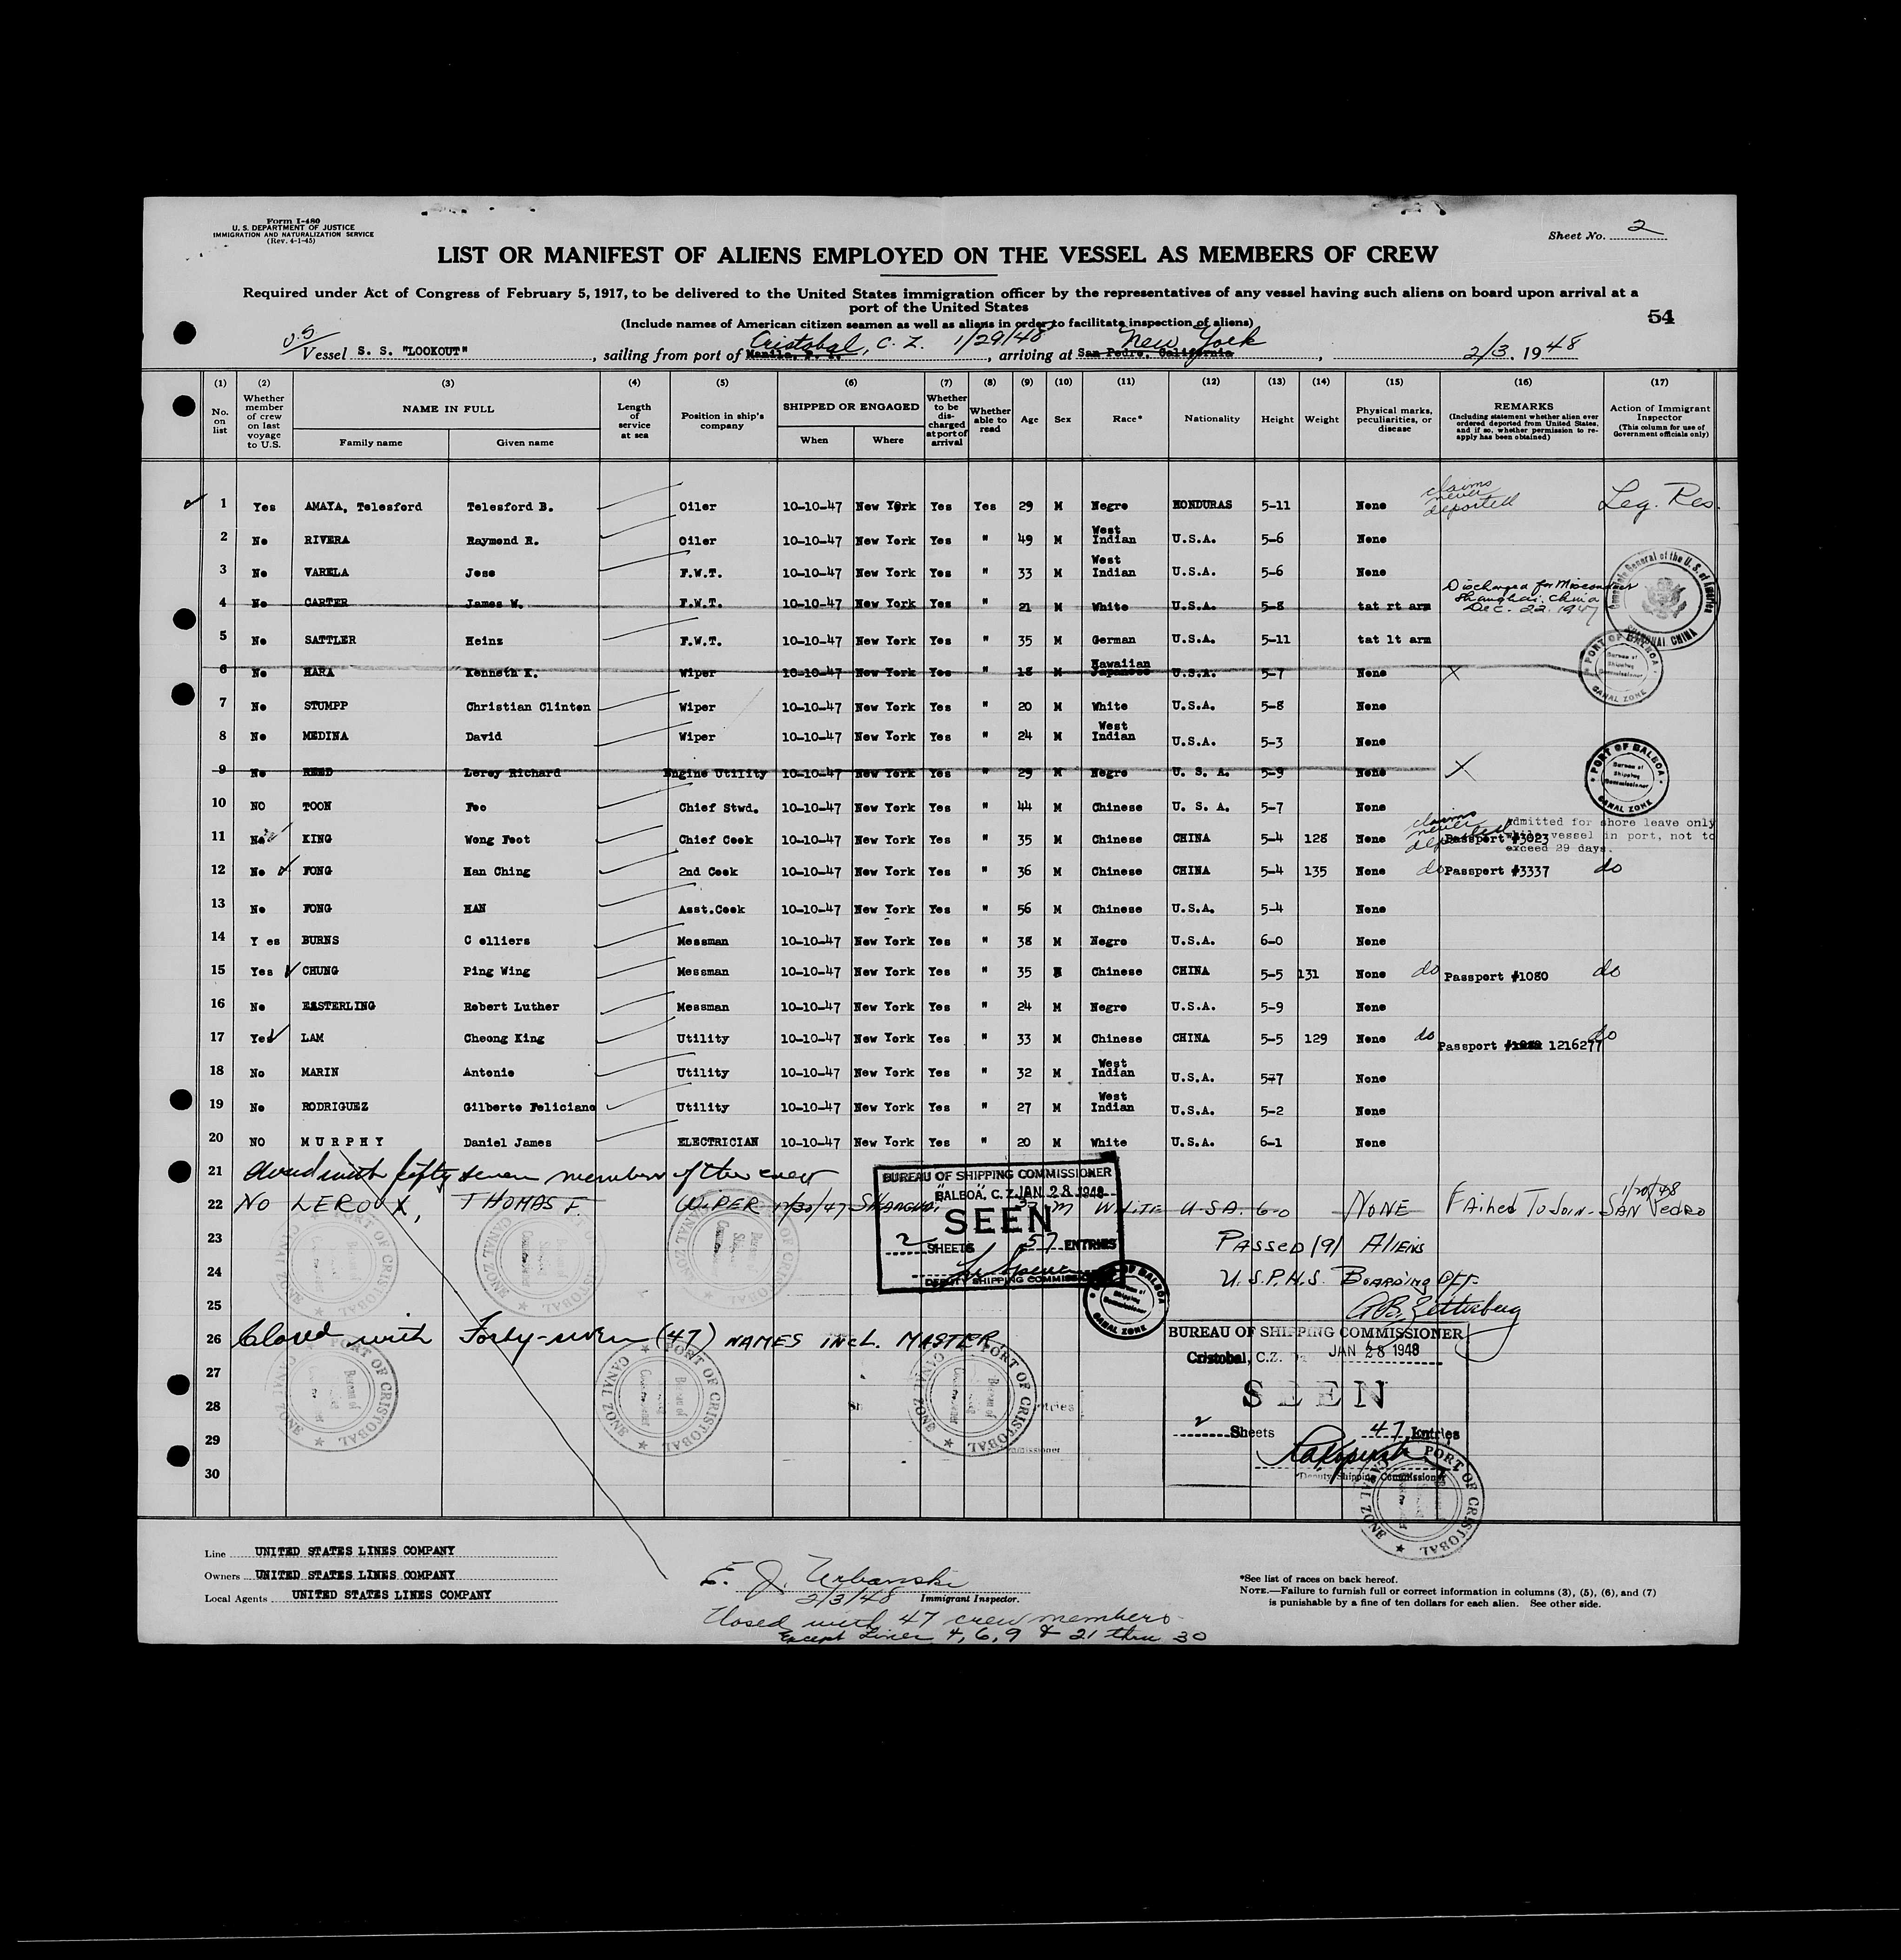 Form I-480
U. S. DEPARTMENT OF JUSTICE
IMMIGRATION AND NATURALIZATION SERVICE
(Rev. 4-1-45)
Sheet No. 2
LIST OR MANIFEST OF ALIENS EMPLOYED ON THE VESSEL AS MEMBERS OF CREW
Required under Act of Congress of February 5, 1917, to be delivered to the United States immigration officer by the representatives of any vessel having such aliens on board upon arrival at a
port of the United States
(Include names of American citizen seamen as well as aliens in order to facilitate inspection of aliens)
54
Cristobal, C. Z. 1/29/48 New York
Vessel S. S. "LOOKOUT", sailing from port of Manila, P. I., arriving at San Pedro, California, 2/3, 1948
(1) (2) (3) (4) (5) (6) (7) (8) (9) (10) (11) (12) (13) (14) (15) (16) (17)
No. on list
Whether member of crew on last voyage to U.S.
NAME IN FULL
Family name
Given name
Length of service at sea
Position in ship's company
SHIPPED OR ENGAGED
When
Where
Whether to be discharged at port of arrival
Whether able to read
Age
Sex
Race*
Nationality
Height
Weight
Physical marks, peculiarities, or disease
REMARKS
(Including statement whether alien ever ordered deported from United States, and if so, whether permission to re-apply has been obtained)
Action of Immigrant Inspector
(This column for use of Government officials only)
1 Yes AMAYA, Telesford Telesford B. Oiler 10-10-47 New York Yes Yes 29 M Negro HONDURAS 5-11 None claims never deported Leg. Res.
2 No RIVERA Raymond R. Oiler 10-10-47 New York Yes " 49 M West Indian U.S.A. 5-6 None
3 No VARELA Jose F.W.T. 10-10-47 New York Yes " 33 M West Indian U.S.A. 5-6 None
4 No CARTER James W. F.W.T. 10-10-47 New York Yes " 21 M White U.S.A. 5-8 tat rt arm Discharged for Misconduct Shanghai, China Dec. 22, 1947
5 No SATTLER Heinz F.W.T. 10-10-47 New York Yes " 35 M German U.S.A. 5-11 tat lt arm
6 No HARA Kenneth K. Wiper 10-10-47 New York Yes " 18 M Hawaiian Japanese U.S.A. 5-7 None X
7 No STUMPP Christian Clinton Wiper 10-10-47 New York Yes " 20 M White U.S.A. 5-8 None
8 No MEDINA David Wiper 10-10-47 New York Yes " 24 M West Indian U.S.A. 5-3 None
9 No REED Leroy Richard Engine Utility 10-10-47 New York Yes " 29 M Negro U. S. A. 5-9 None X
10 NO TOON Foo Chief Stwd. 10-10-47 New York Yes " 44 M Chinese U. S. A. 5-7 None
11 No KING Wong Foot Chief Cook 10-10-47 New York Yes " 35 M Chinese CHINA 5-4 128 None claims never deported Passport #3023 Admitted for shore leave only while vessel in port, not to exceed 29 days.
12 No FONG Han Ching 2nd Cook 10-10-47 New York Yes " 36 M Chinese CHINA 5-4 135 None do Passport #3337 do
13 No FONG HAN Asst.Cook 10-10-47 New York Yes " 56 M Chinese U.S.A. 5-4 None
14 Y es BURNS C olliers Messman 10-10-47 New York Yes " 38 M Negro U.S.A. 6-0 None
15 Yes CHUNG Ping Wing Messman 10-10-47 New York Yes " 35 M Chinese CHINA 5-5 131 None do Passport #1080 do
16 No EASTERLING Robert Luther Messman 10-10-47 New York Yes " 24 M Negro U.S.A. 5-9 None
17 Yes LAM Cheong King Utility 10-10-47 New York Yes " 33 M Chinese CHINA 5-5 129 None do Passport 1216277 do
18 No MARIN Antonio Utility 10-10-47 New York Yes " 32 M West Indian U.S.A. 5-7 None
19 No RODRIGUEZ Gilberto Feliciano Utility 10-10-47 New York Yes " 27 M West Indian U.S.A. 5-2 None
20 NO M U R P H Y Daniel James ELECTRICIAN 10-10-47 New York Yes " 20 M White U.S.A. 6-1 None
21 Closed with fifty seven members of the crew
22 NO LEROUX, THOMAS F. WIPER 12/30/47 SHANGHAI 37 M WHITE USA 6-0 NONE FAiled To Join - SAN Pedro 1/20/48
23 PASSED 191 ALIENS
24 U.S.P.H.S. BOARDING OFF.
25
26 Closed with Forty-seven (47) NAMES INCL. MASTER
27
28
29
30
BUREAU OF SHIPPING COMMISSIONER
BALBOA, C. Z. JAN 28 1948
SEEN
2 SHEETS 57 ENTRIES
DEPUTY SHIPPING COMMISSIONER
BUREAU OF SHIPPING COMMISSIONER
Cristobal, C.Z. JAN 28 1948
SEEN
2 Sheets 47 Entries
Deputy Shipping Commissioner
Consulate General of the U. S. of America
SHANGHAI CHINA
PORT OF BALBOA
Bureau of Shipping Commissioner
CANAL ZONE
PORT OF BALBOA
Bureau of Shipping Commissioner
CANAL ZONE
PORT OF BALBOA
Bureau of Shipping Commissioner
CANAL ZONE
PORT OF CRISTOBAL
CANAL ZONE
Line UNITED STATES LINES COMPANY
Owners UNITED STATES LINES COMPANY
Local Agents UNITED STATES LINES COMPANY
E. J. Urbanski
2/3/48 Immigrant Inspector.
Closed with 47 crew members
Except Lines 4, 6, 9 & 21 thru 30
*See list of races on back hereof.
NOTE.—Failure to furnish full or correct information in columns (3), (5), (6), and (7)
is punishable by a fine of ten dollars for each alien. See other side.